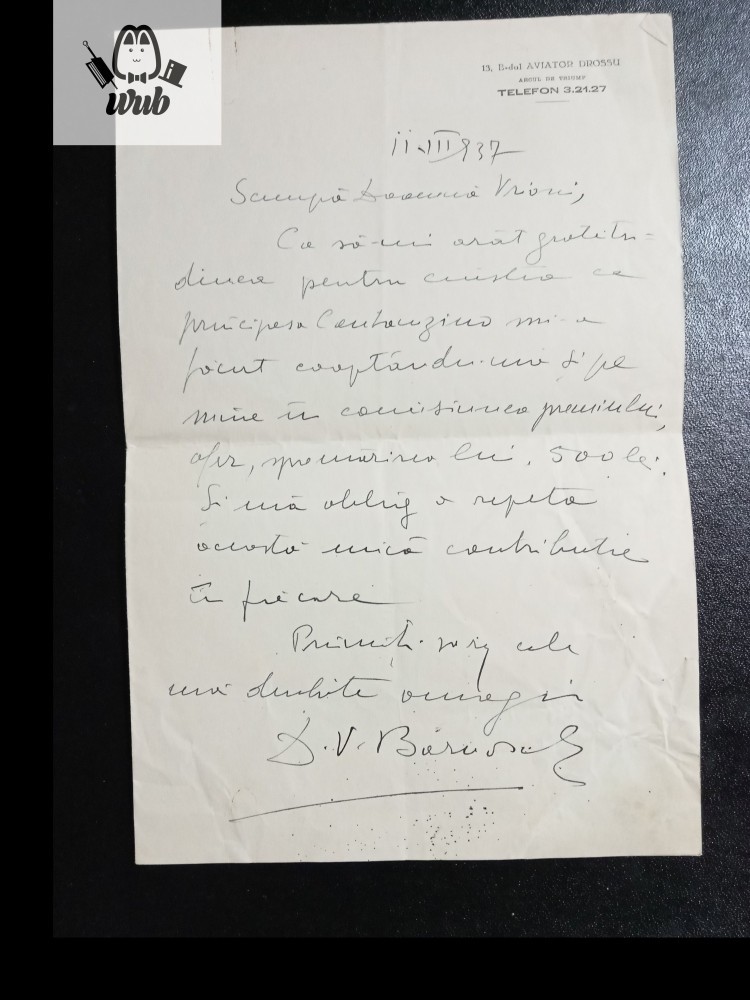 wub
13, B-dul AVIATOR DROSSU
ARCUL DE TRIUMF
TELEFON 3.21.27
11.III 937
Scumpă Doamnă Vrioni,
Ca să-mi arăt gratitu=
dinea pentru cinstea ce
principesa Cantacuzino mi-a
făcut cooptându-mă și pe
mine în comisiunea premiului,
ofer, spre mărirea lui, 500 lei.
Și mă oblig a repeta
această mică contribuție
în fiecare
Primiți, vă rog, cele
mai deosebite omagii
D. V. Barnoschi